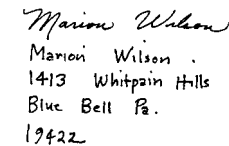 Marion Wilson
Marion Wilson .
1413 Whitpain Hills
Blue Bell Pa.
19422